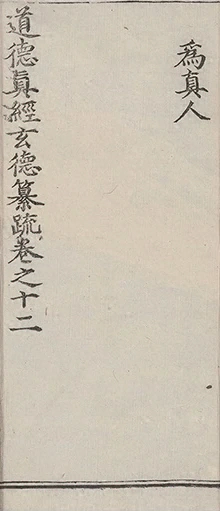 為真人
道德真經玄德纂疏卷之十二